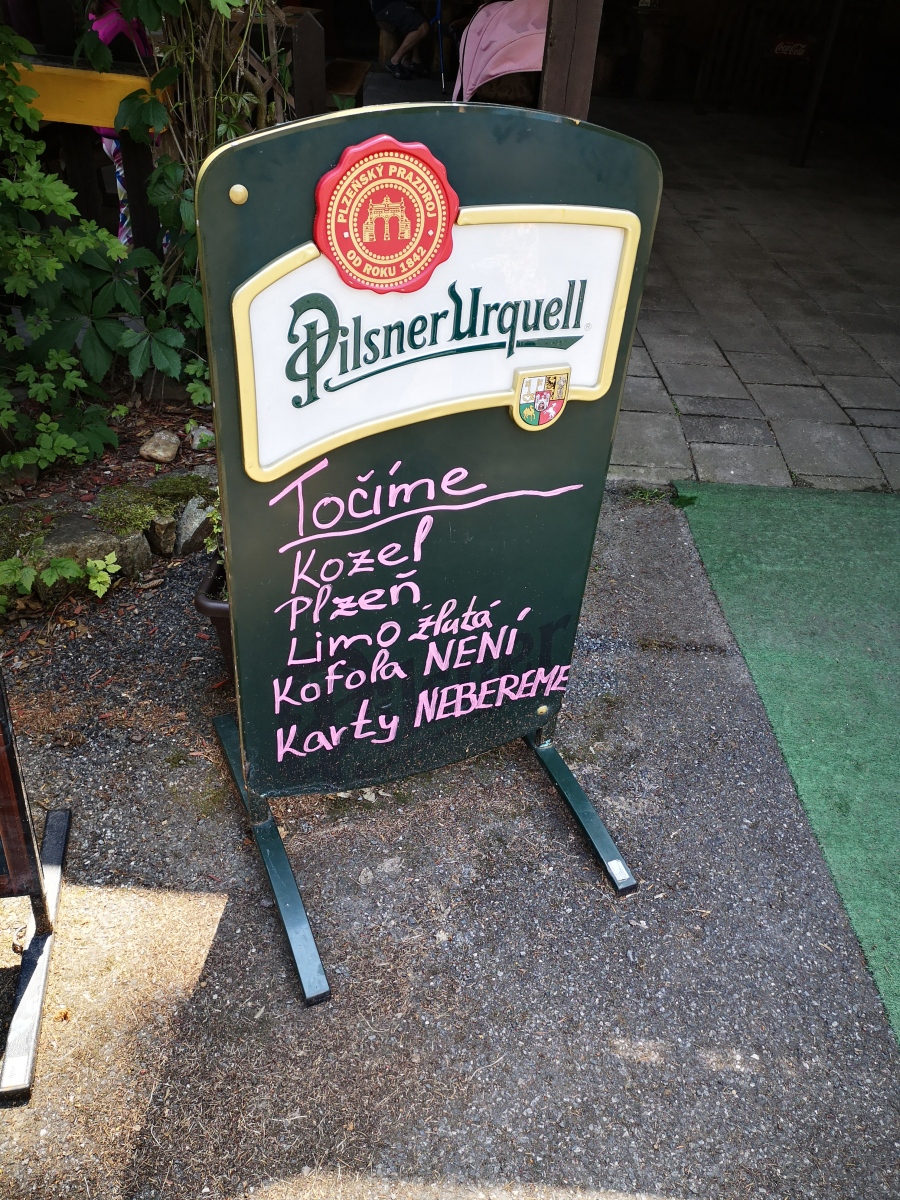 PLZEŇSKÝ PRAZDROJ
OD ROKU 1842
Pilsner Urquell
Točíme
Kozel
Plzeň
Limo žlutá
Kofola NENÍ
Karty NEBEREME
Coca-Cola